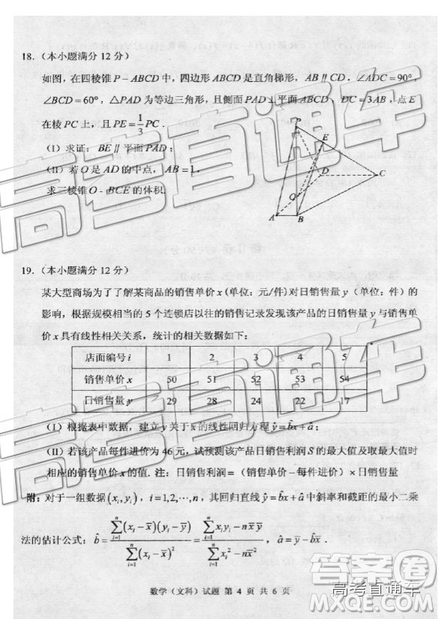 18.（本小题满分 12 分）
如图，在四棱锥 P－ABCD 中，四边形 ABCD 是直角梯形，AB∥CD，∠ADC=90°，
∠BCD=60°，△PAD 为等边三角形，且侧面 PAD⊥平面 ABCD，DC=3AB，点 E
在棱 PC 上，且 PE=1/3 PC．
（I）求证：BE∥平面 PAD；
（II）若 O 是 AD 的中点，AB=1，
求三棱锥 O－BCE 的体积．
P
E
D
C
O
A
B
19.（本小题满分 12 分）
某大型商场为了了解某商品的销售单价 x（单位：元/件）对日销售量 y（单位：件）的
影响，根据规模相当的 5 个连锁店以往的销售记录发现该产品的日销售量 y 与销售单
价 x 具有线性相关关系，统计的相关数据如下：
店面编号 i 1 2 3 4 5
销售单价 x 50 51 52 53 54
日销售量 y 29 28 24 22
（I）根据表中数据，建立 y 关于 x 的线性回归方程 ŷ=b̂x+â；
（II）若该产品每件进价为 46 元，试预测该产品日销售利润 S 的最大值及取最大值时
相应的销售单价 x 的值．注：日销售利润=（销售单价－每件进价）×日销售量
附：对于一组数据(xᵢ,yᵢ)，i=1,2,⋯,n，其回归直线 ŷ=b̂x+â 中斜率和截距的最小二乘
法的估计公式：b̂=∑(xᵢ－x̄)(yᵢ－ȳ)/∑(xᵢ－x̄)²=∑xᵢyᵢ－nx̄ȳ/∑xᵢ²－nx̄²，â=ȳ－b̂x̄．
数学（文科）试题 第 4 页 共 6 页
高考直通车
高考直通车
高考直通车
答案圈
高考直通车